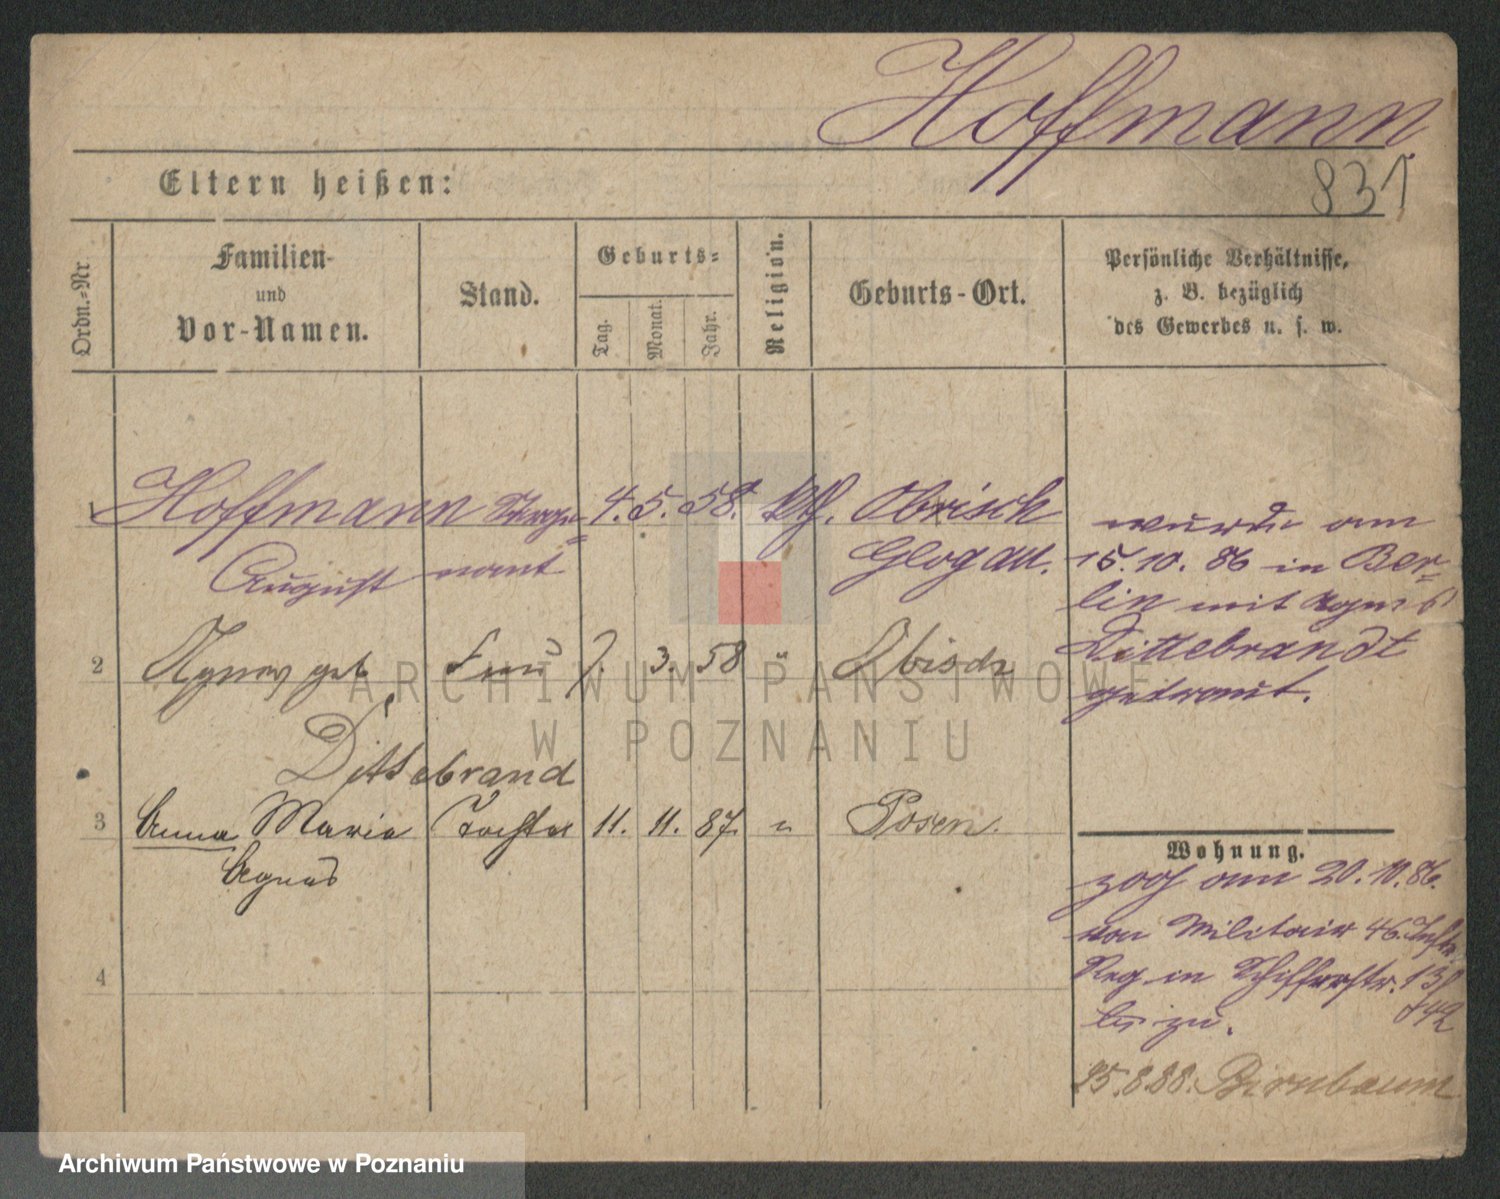 Hoffmann
831
Eltern heißen:
Ordn.-Nr
Familien-
und
Vor-Namen.
Stand.
Geburts-
Tag.
Monat.
Jahr.
Religion.
Geburts-Ort.
Persönliche Verhältnisse,
z. B. bezüglich
des Gewerbes u. s. w.
1 Hoffmann Serge- 4. 5. 58. kth. Obrisch
August nant Glogau.
wurde am
15.10.86 in Ber-
lin mit Agnes
Dittebrandt
getraut.
2 Agnes geb Frau 7. 3. 58 " Obisch
Dittebrand
3 Anna Maria Tochter 11. 11. 87. " Posen.
Agnes
4
Wohnung.
zog am 20.10.86.
von Militair 46. Inftr
Reg in Schifferstr. 13
zu.
25.8.88. Birnbaum
ARCHIWUM PAŃSTWOWE
W POZNANIU
Archiwum Państwowe w Poznaniu